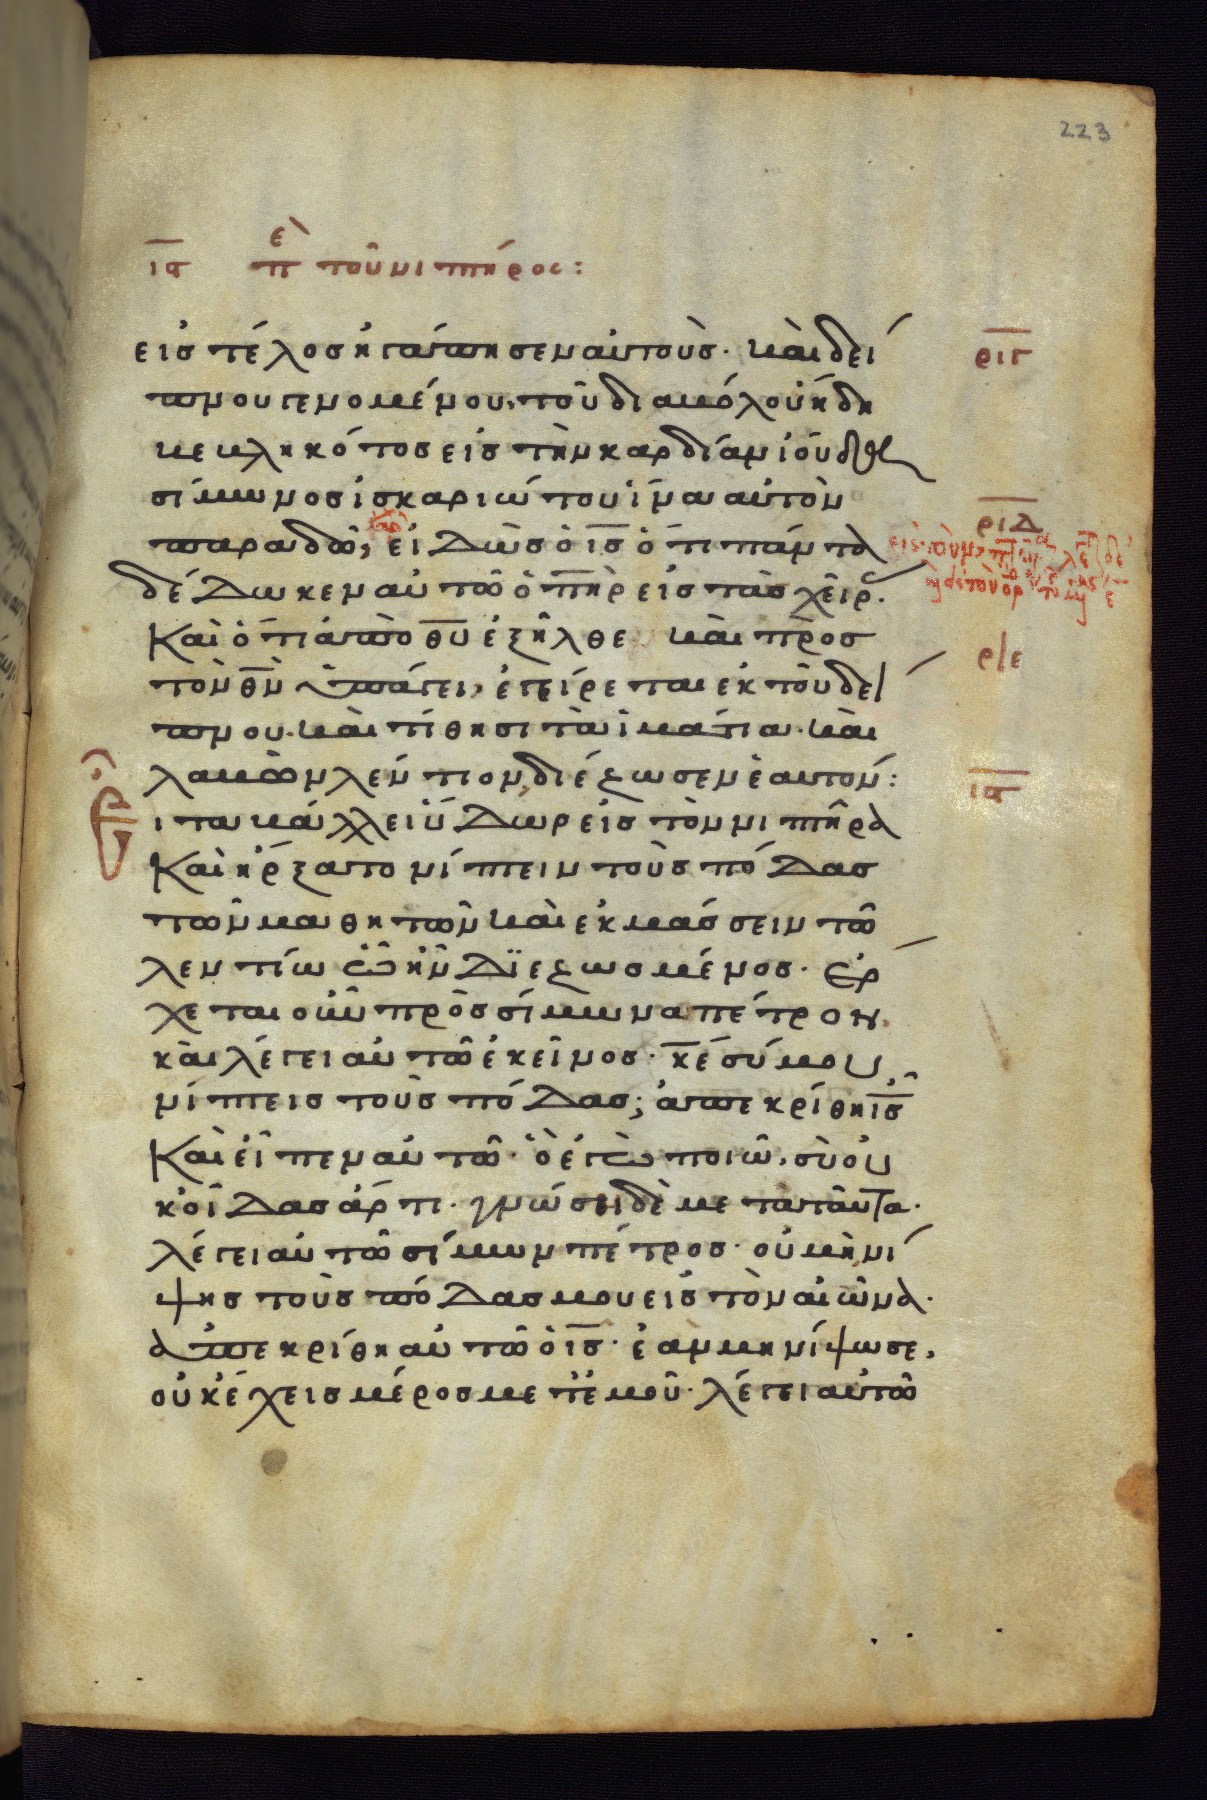 223
ια περὶ τοῦ νιπτῆρος:
εἰς τέλος ἠγάπησεν αὐτοὺς· καὶ δεί
πνου γενομένου, τοῦ διαβόλου ἤδη
βεβληκότος εἰς τὴν καρδίαν ἰούδα
σίμωνος ἰσκαριώτου ἵνα αὐτὸν
παραδῶ, εἰδὼς ὁ ις ὅτι πάντα
δέδωκεν αὐτῶ ὁ πηρ εἰς τὰς χεῖρ
καὶ ὅτι ἀπὸ θυ ἐξῆλθε καὶ πρὸς
τὸν θν ὑπάγει, ἐγείρεται ἐκ τοῦ δεί
πνου· καὶ τίθησι τὰ ἱμάτια· καὶ
λαβὼν λέντιον, διέζωσεν ἑαυτόν:
ιτα βάλλει ὕδωρ εἰς τὸν νιπτῆρα
καὶ ἤρξατο νίπτειν τοὺς πόδας
τῶν μαθητῶν καὶ ἐκμάσσειν τῶ
λεντίω ὧ ἦν διεζωσμένος· ἔρ
χεται οὖν πρὸς σίμωνα πέτρον
καὶ λέγει αὐτῶ ἐκεῖνος· κέ σύ μου
νίπτεις τοὺς πόδας; ἀπεκρίθη ις
καὶ εἶπεν αὐτῶ· ὃ ἐγὼ ποιῶ, σὺ οὐ
κ οἶδας ἄρτι· γνώσει δὲ μετα ταῦτα·
λέγει αὐτῶ σίμων πέτρος· οὐ μὴ νί
ψης τοὺς πόδας μου εἰς τὸν αἰῶνα·
ἀπεκρίθη αὐτῶ ὁ ις· ἐὰν μη νίψω σε,
οὐκ ἔχεις μέρος μετ ἐμοῦ· λέγει αὐτῶ
ριγ
ριδ
ριε
ια